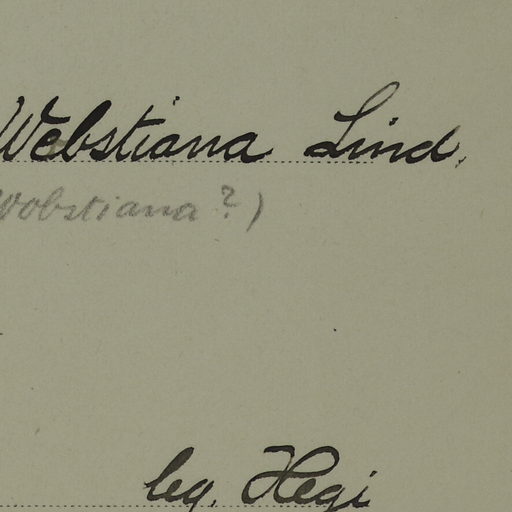 Webstiana Lind.
Wobstiana?)
leg. Hegi